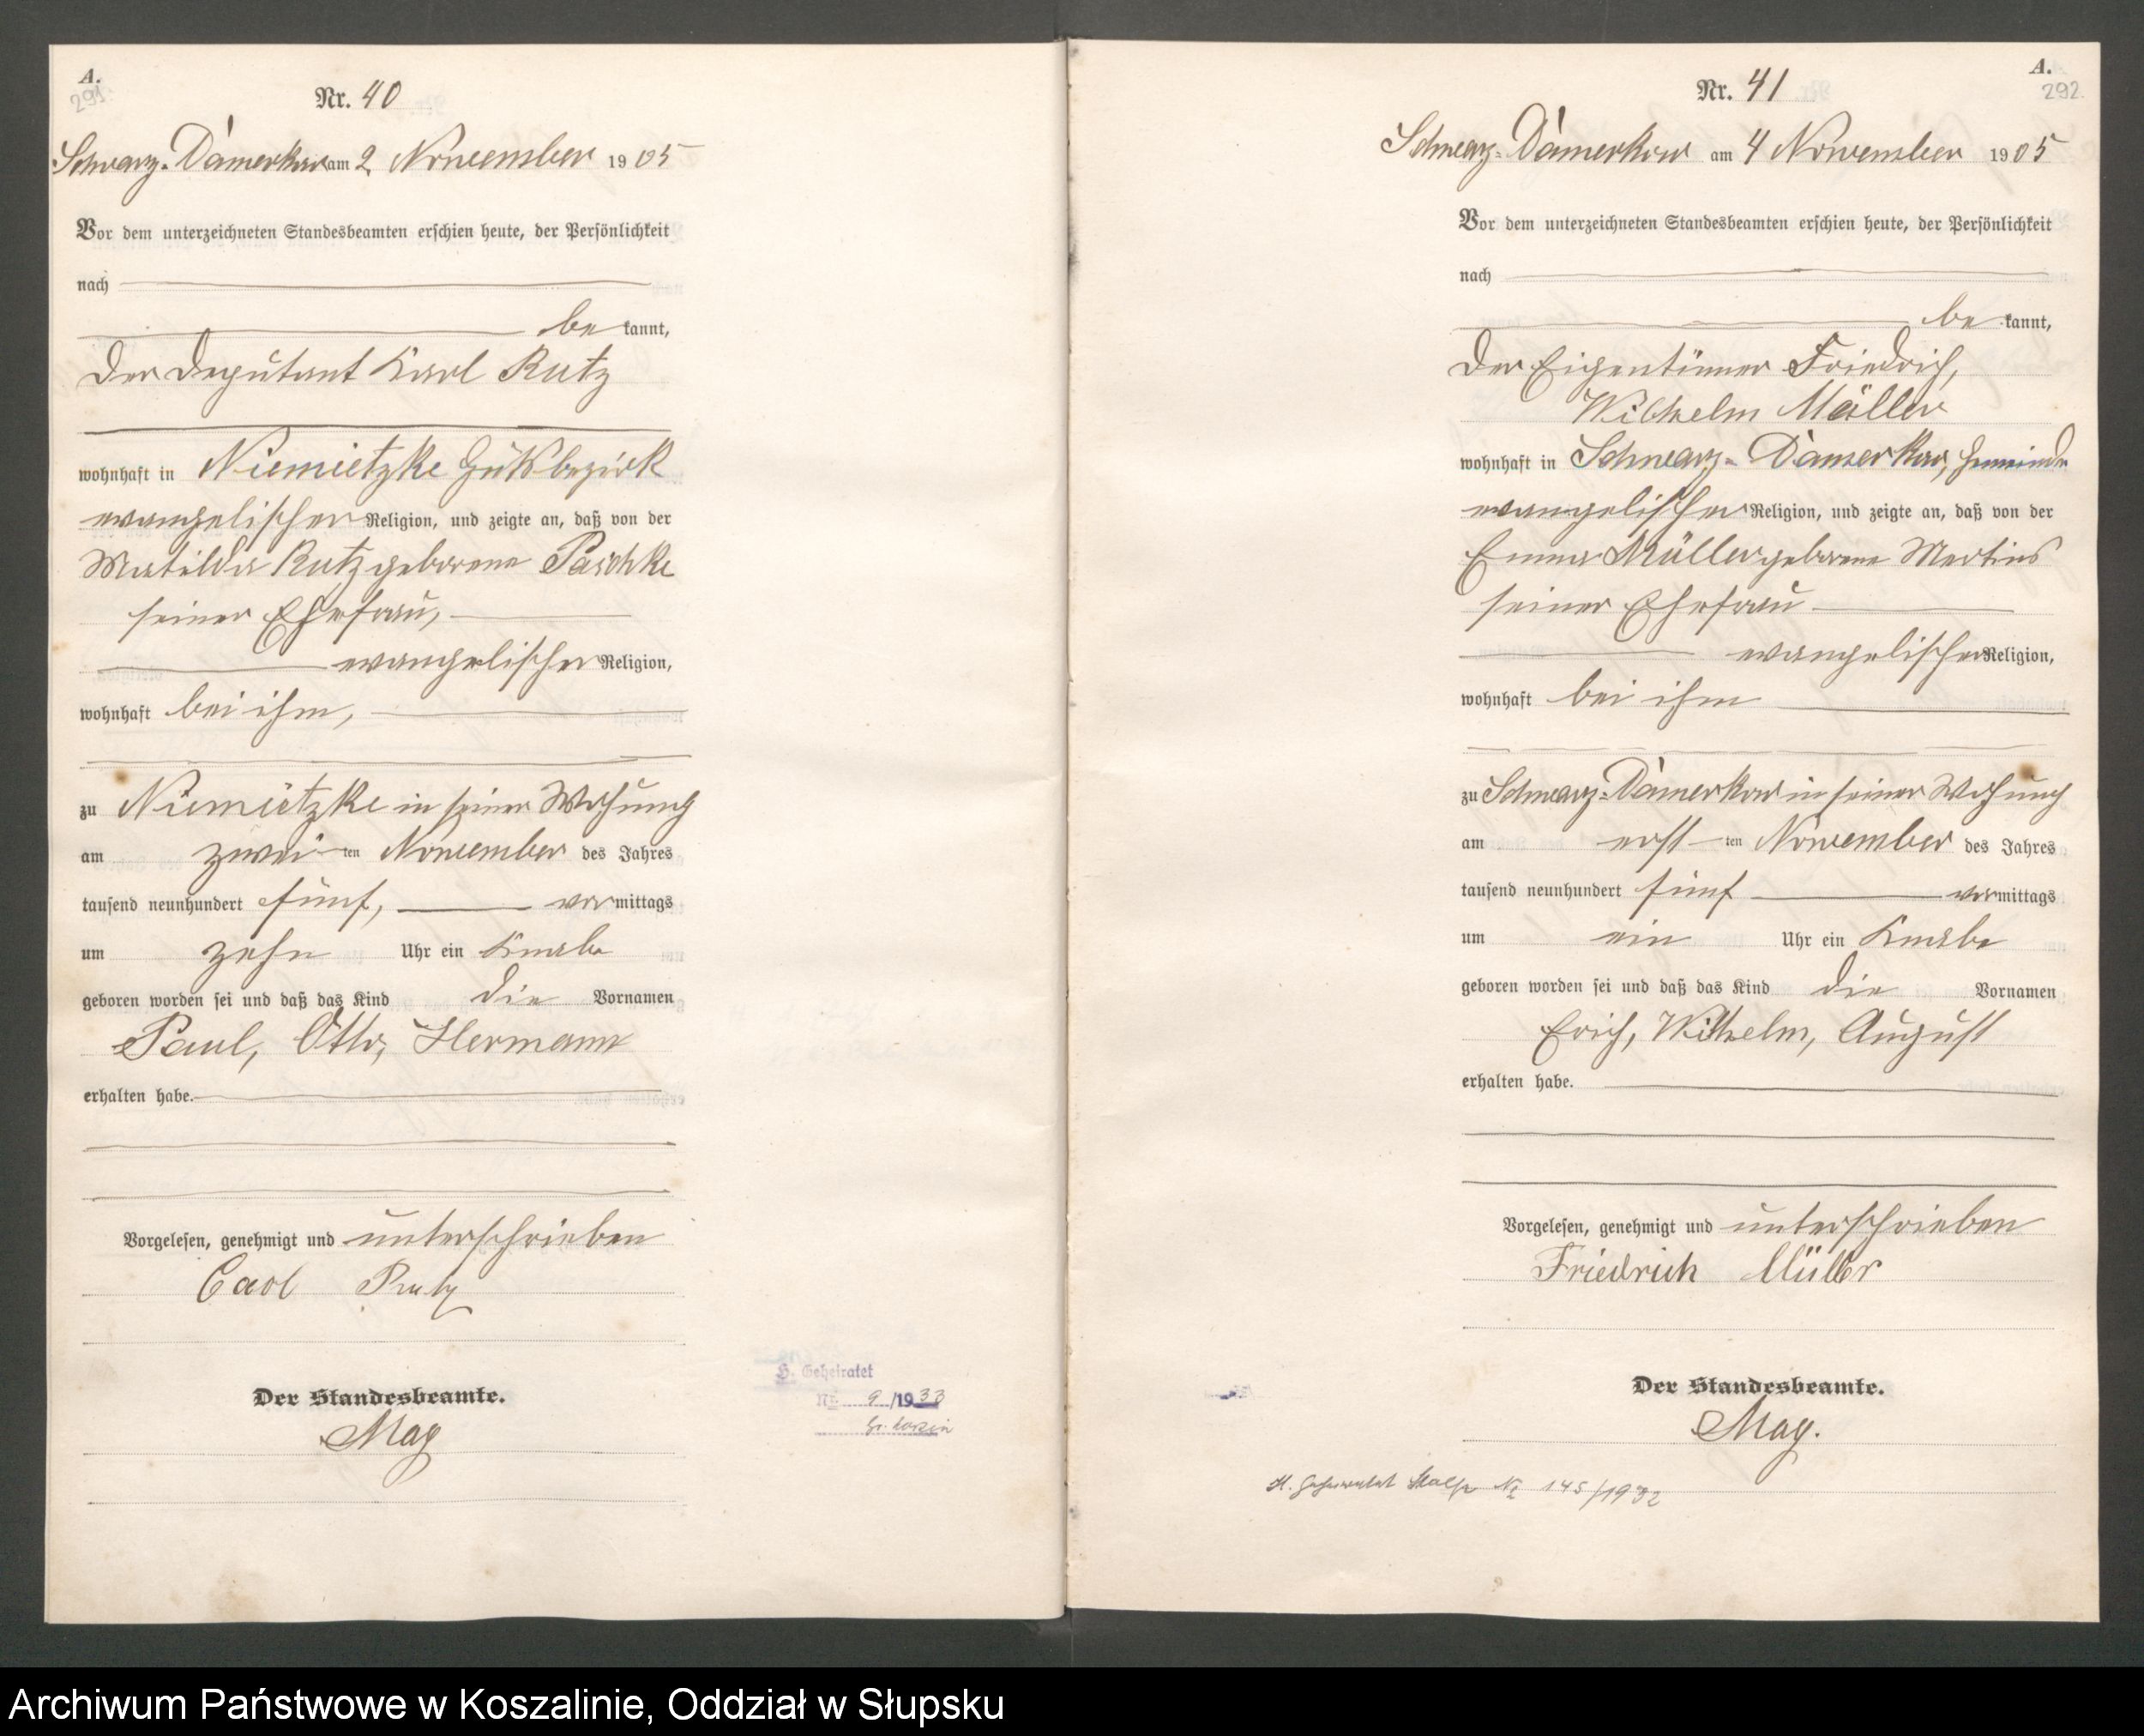 A.
291.
Nr. 40
Schwarz-Damerkow am 2 November 1905
Vor dem unterzeichneten Standesbeamten erschien heute, der Persönlichkeit
nach
be kannt,
Der Deputant Karl Rutz
wohnhaft in Niemietzke Gutsbezirk
evangelischer Religion, und zeigte an, daß von der
Matilde Rutz geborene Paschke
seiner Ehefrau,
evangelischer Religion,
wohnhaft bei ihm,
zu Niemietzke in seiner Wohnung
am zwei ten November des Jahres
tausend neunhundert fünf, vor mittags
um zehn Uhr ein Knabe
geboren worden sei und daß das Kind die Vornamen
Paul, Otto, Hermann
erhalten habe.
Vorgelesen, genehmigt und unterschrieben
Carl Rutz
Der Standesbeamte.
Mag
H. Geheiratet
Nr. 9/1933
A.
292.
Nr. 41
Schwarz-Damerkow am 4 November 1905
Vor dem unterzeichneten Standesbeamten erschien heute, der Persönlichkeit
nach
be kannt,
Der Eigentümer Friedrich,
Wilhelm Müller
wohnhaft in Schwarz-Damerkow, Gemeinde
evangelischer Religion, und zeigte an, daß von der
Emma Müller geborene Mertins
seiner Ehefrau
evangelischer Religion,
wohnhaft bei ihm
zu Schwarz-Damerkow in seiner Wohnung
am erst ten November des Jahres
tausend neunhundert fünf vor mittags
um ein Uhr ein Knabe
geboren worden sei und daß das Kind die Vornamen
Erich, Wilhelm, August
erhalten habe.
Vorgelesen, genehmigt und unterschrieben
Friedrich Müller
Der Standesbeamte.
Mag.
H. Geheiratet Stolp Nr 145/1932
Archiwum Państwowe w Koszalinie, Oddział w Słupsku